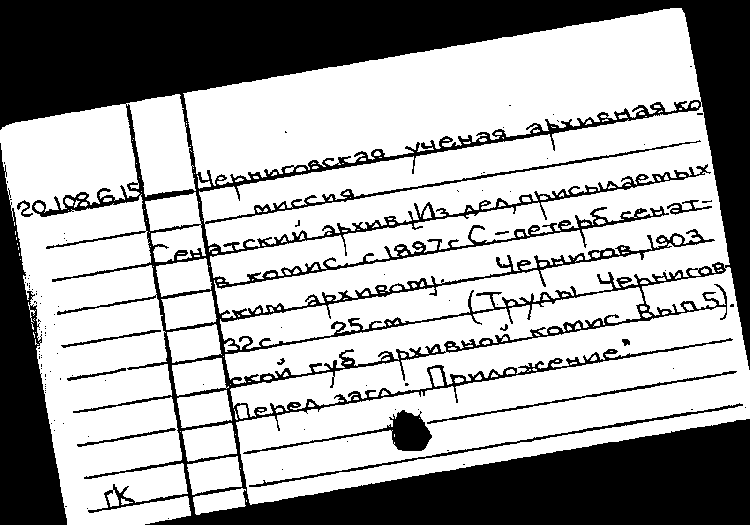 Черниговская ученая архивная ко
20.108.6.15
миссия.
Сенатский архив. [Из дел, присылаемых
в комис. с 1897 г С-петерб. сенат-
ским архивом]. Чернигов, 1903
32 с. 25 см. (Труды Чернигов-
ской губ архивной комис. Вып. 5).
Перед загл.: „Приложение"
ГК